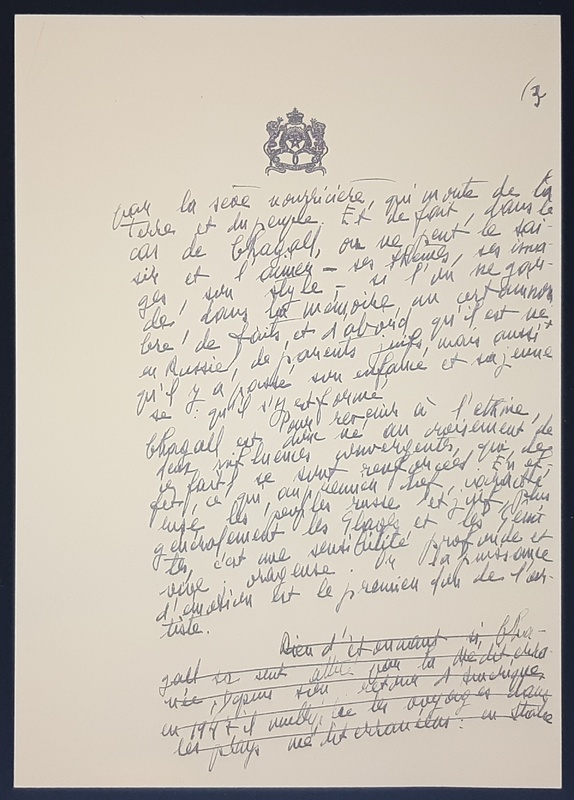 (3
par la sève nourricière, qui monte de la
terre et du peuple. Et de fait, dans le
cas de Chagall, on ne peut le sai-
sir et l'aimer – ses thèmes, ses ima-
ges, son style – si l'on ne gar-
de, dans la mémoire, un certain nom-
bre de faits, et d'abord qu'il est né
en Russie, de parents juifs, mais aussi
qu'il y a passé son enfance et sa jeune
se qu'il s'y est formé.
Pour revenir à l'ethnie,
Chagall est donc né au croisement de
deux influences convergentes, qui, de
ce fait, se sont renforcées. En ef-
fet, ce qui, au premier chef, caracté
rise les peuples russe et juif, plus
généralement les Slaves et les Sémi
tes, c'est une sensibilité profonde et
vive, orageuse. Or la puissance
d'émotion est le premier don de l'ar-
tiste.
Rien d'étonnant si Cha-
gall se sent attiré par la Méditerra-
née. Depuis son retour d'Amérique,
en 1947, il multiplie les voyages dans
les pays méditerranéens : en Italie